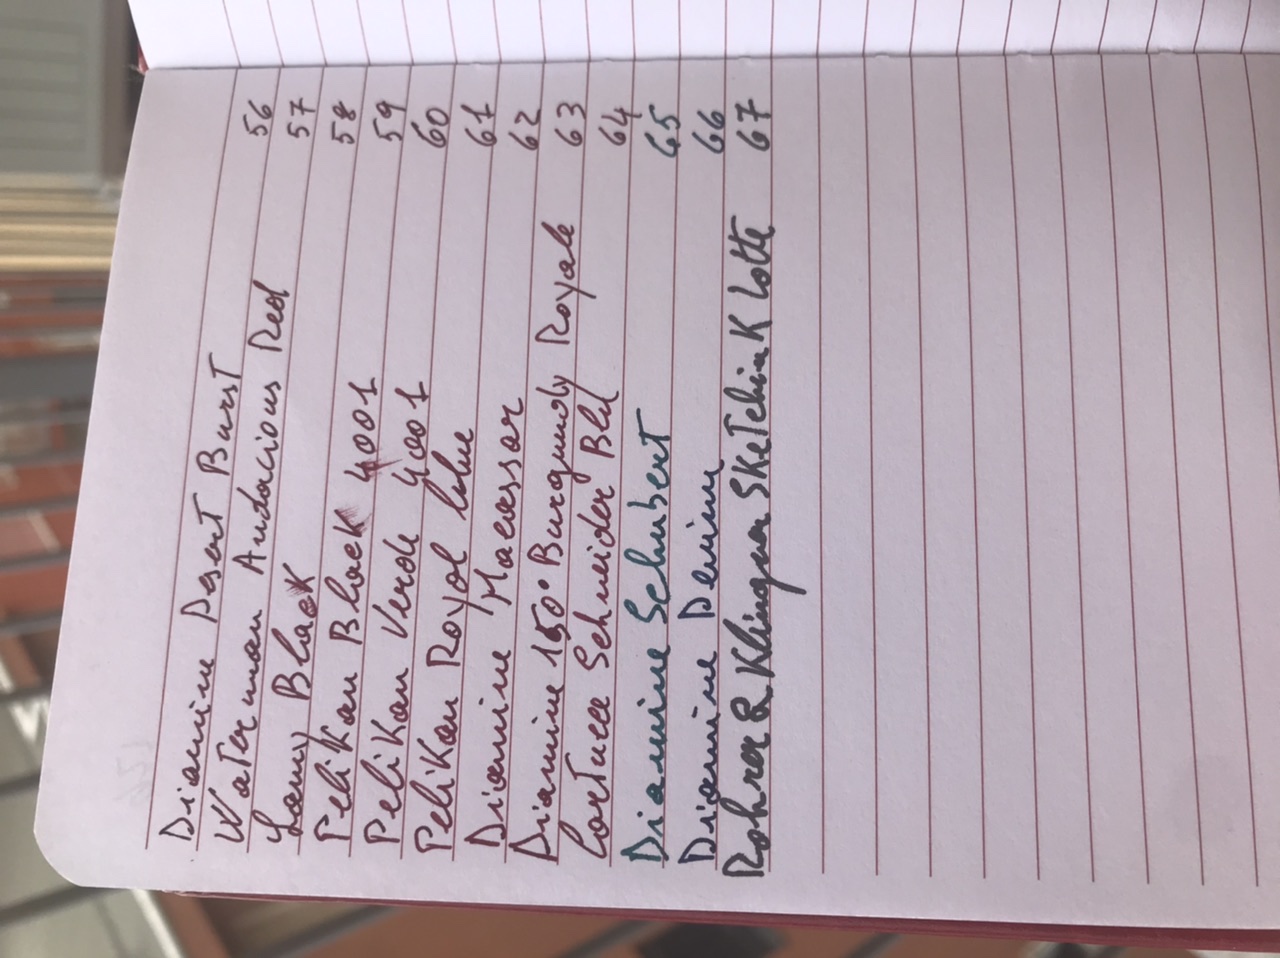 Diamine Desert Burst 56
Waterman Audacious Red 57
Lamy Black 58
Pelikan Black 4001 59
Pelikan Verde 4001 60
Pelikan Royal blue 61
Diamine Macassar 62
Diamine 150° Burgundy Royale 63
Cartucce Schneider Blu 64
Diamine Schubert 65
Diamine Denim 66
Rohrer & Klingner Sketchink Lotte 67